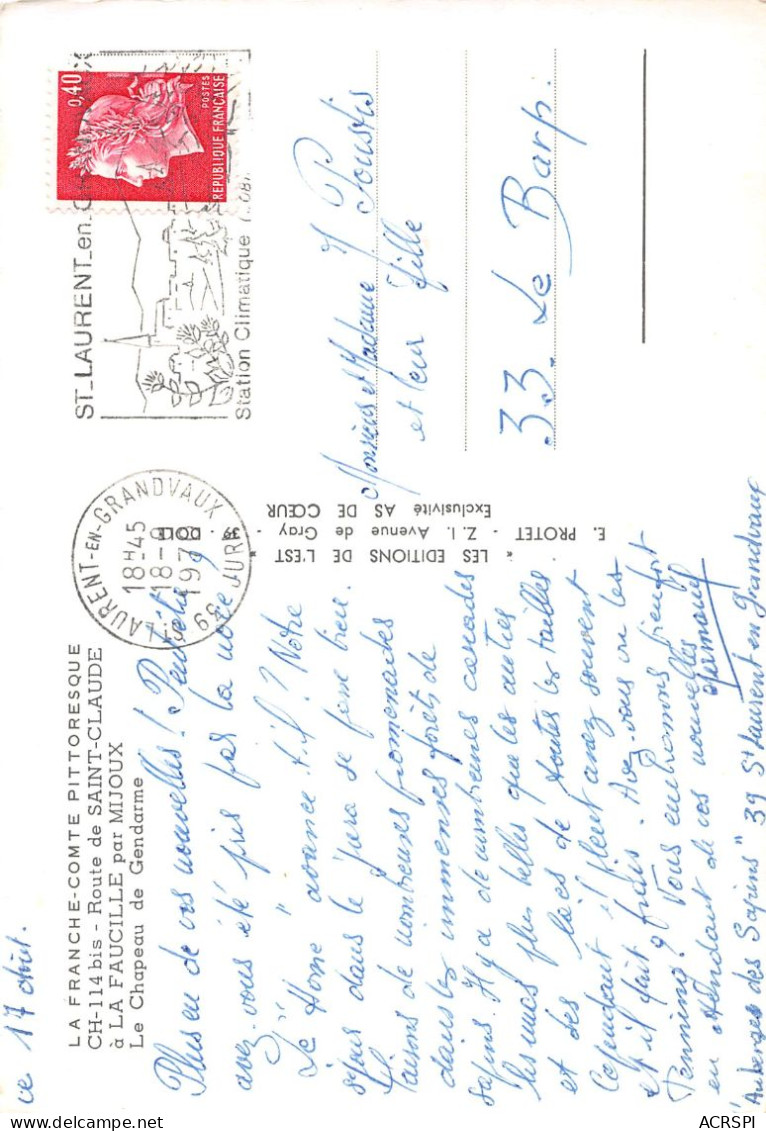 LA FRANCHE-COMTE PITTORESQUE
CH-114 bis - Route de SAINT-CLAUDE
à LA FAUCILLE par MIJOUX
Le Chapeau de Gendarme
ce 17 Août.
Plus eu de vos nouvelles! Peut être
avez-vous été pris par la noce?
Le "Home" avance t.il? Notre
séjour dans le Jura se passe bien.
faisons de nombreuses promenades
dans les immenses forêts de
sapins. Il y a de nombreuses cascades
les unes plus belles que les autres
et des lacs de toutes les tailles
Cependant il pleut assez souvent
et il fait frais. Avez-vous vu les
Pennino? Vous embrassons bienfort
en attendant de vos nouvelles
"Auberge des Sapins" 39 St Laurent en Grandvaux
LES EDITIONS DE L'EST
E. PROTET - Z. I. Avenue de Gray - 39 - DOLE
Exclusivité AS DE CŒUR
ST_LAURENT_en_
Station Climatique
LAURENT-EN-GRANDVAUX
18H45
18-8
1970
39 JURA
0,40
POSTES
REPUBLIQUE FRANÇAISE
Monsieur et Madame Y Poustis
et leur fille
33. Le Barp.
ACRSPI